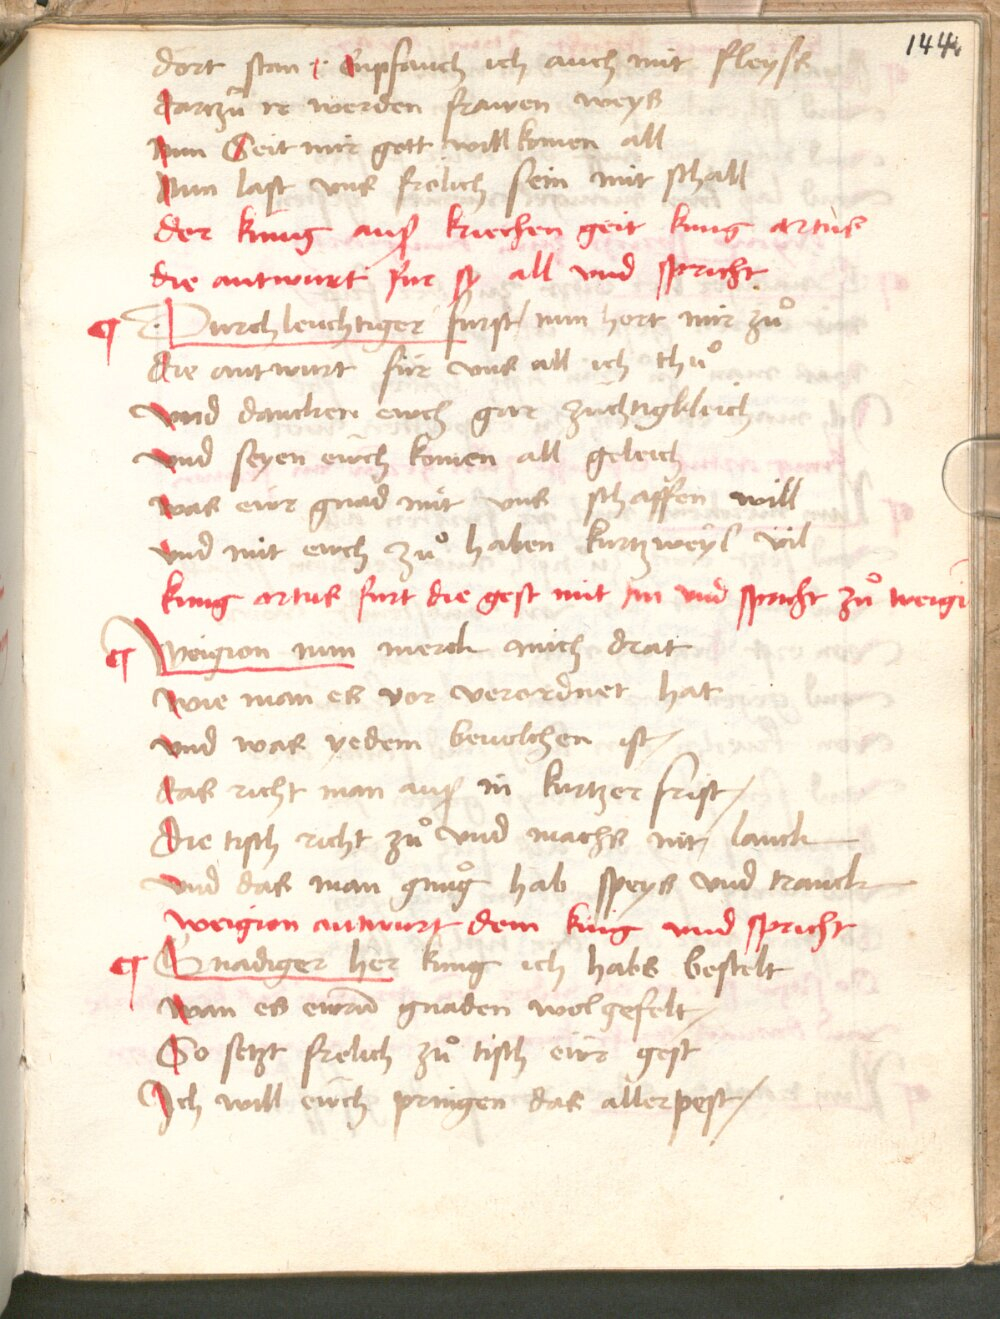 144
dort stan · Enpfauch ich auch mit fleyſs
Darzů ir werden frawen weys
Nun Seit mir gott willkomen all
Nun laſt vns frölich sein mit schall
der küng auſs kriechen geit küng artus
die antwurt für sy all vnd spricht
¶ Durchleuchtiger fürst nun hort mir zů
Die antwurt für vns all ich thů
Vnd dancken ewch gar züchtigkleich
Vnd seyen eẅch komen all geleich
Was eẅr gnad mit vns schaffen will
Vnd mit ewch zů haben kurtzweyl vil
küng artus fürt die gest mit im vnd spricht zů weigi
¶ Weigion nun merck mich drat
Wie man es vor verordnet hat
Vnd was yedem beuolchen ist /
Das richt man auſs in kurtzer frist /
Die tisch richt zů vnd machs nit lanck
Vnd das man gnůg hab speys vnd tranck
weigion antwurt dem küng vnd spricht
¶ Gnädiger her küng ich habs bestelt
Wan es eẅrn gnaden wolgefelt /
So setzt frölich zů tisch eẅr gest
Ich will eẅch pringen das allerpest /